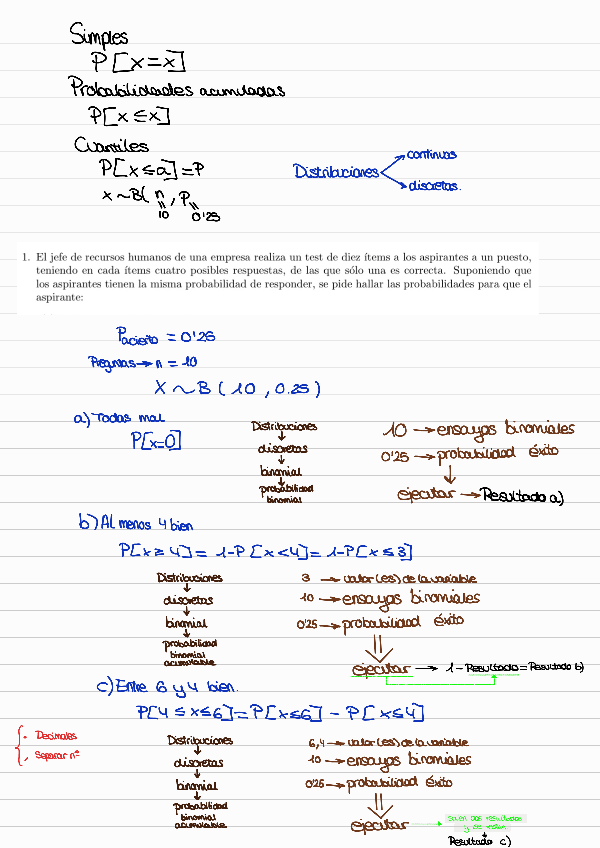 Simples
P[x=x]
Probabilidades acumuladas
P[x≤x]
Cuantiles
P[x≤a]=P
x~B(n, P
10 0'25
Distribuciones
continuas
discretas.
1. El jefe de recursos humanos de una empresa realiza un test de diez ítems a los aspirantes a un puesto,
teniendo en cada ítems cuatro posibles respuestas, de las que sólo una es correcta. Suponiendo que
los aspirantes tienen la misma probabilidad de responder, se pide hallar las probabilidades para que el
aspirante:
Pacierto = 0'25
Preguntas → n = 10
X ~ B ( 10 , 0.25 )
a) Todas mal
P[x=0]
Distribuciones
↓
discretas
↓
binomial
↓
probabilidad
binomial
10 → ensayos binomiales
0'25 → probabilidad éxito
↓
ejecutar → Resultado a)
b) Al menos 4 bien
P[x≥4] = 1-P[x<4] = 1-P[x≤3]
Distribuciones
↓
discretas
↓
binomial
↓
probabilidad
binomial
acumulable
3 → valor(es) de la variable
10 → ensayos binomiales
0'25 → probabilidad éxito
ejecutar → 1-Resultado = Resultado b)
c) Entre 6 y 4 bien.
P[4≤x≤6] = P[x≤6] - P[x≤4]
. Decimales
, Separar nº
Distribuciones
↓
discretas
↓
binomial
↓
probabilidad
binomial
acumulable
6,4 → valor(es) de la variable
10 → ensayos binomiales
0'25 → probabilidad éxito
ejecutar →
dos resultados
Resultado c)